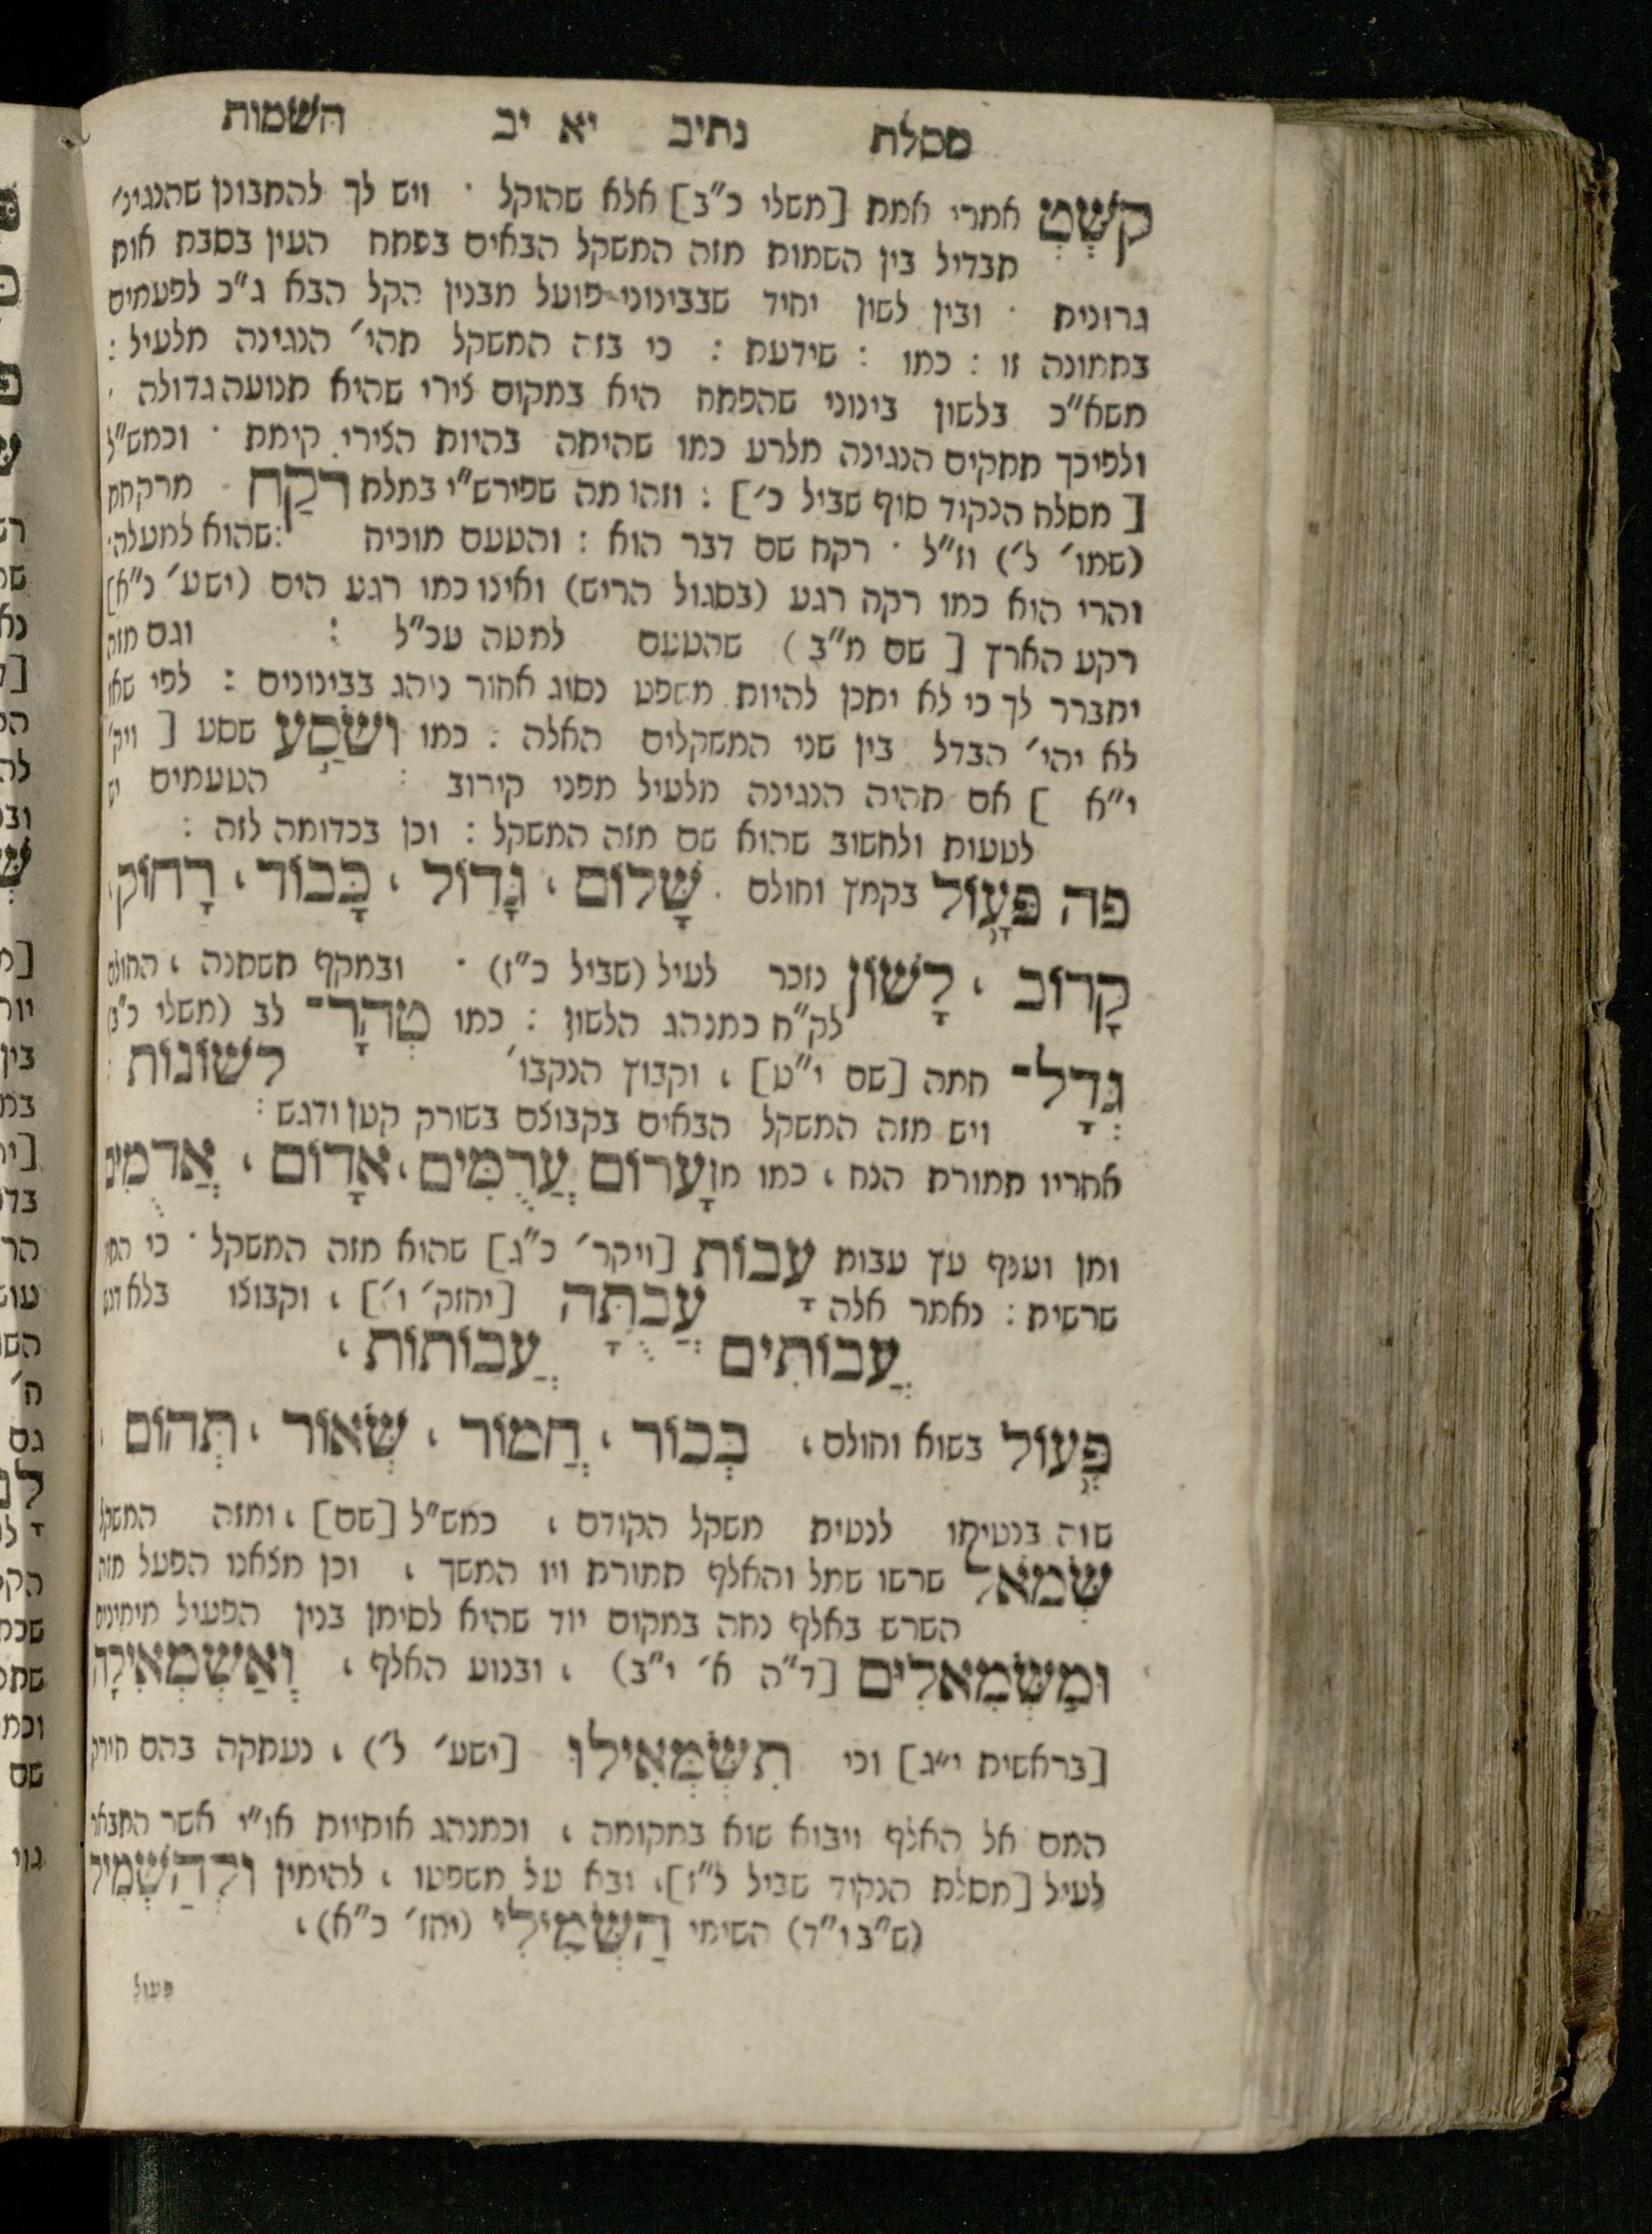 מסלת נתיב יא יב השמות
קֹשְׁטְ אמרי אמת [משלי כ״ב] אלא שהוקל · ויש לך להתבונן שהנגינ׳
מבדיל בין השמות מזה המשקל הבאים בפתח העין בסבת אות
גרונית · ובין לשון יחיד שבבינוני פועל מבנין הקל הבא ג״כ לפעמים
בתמונה זו : כמו : שידעת : כי בזה המשקל תהי׳ הנגינה מלעיל :
משא״כ בלשון בינוני שהפתח היא במקום צירי שהיא תנועה גדולה ·
ולפיכך תתקים הנגינה מלרע כמו שהיתה בהיות הצירי קימת · וכמש״ל
[מסלת הנקוד סוף שביל כ׳] : וזהו מה שפירש״י במלת רֹקַח מרקחת
(שמו׳ ל׳) וז״ל · רקח שם דבר הוא : והטעם מוכיח שהוא למעלה:
והרי הוא כמו רקח רגע (בסגול הריש) ואינו כמו רגע הים (ישע׳ נ״א)
רקע הארץ [שם מ״ב) שהטעם למטה עכ״ל : וגם מזה
יתברר לך כי לא יתכן להיות משפט נסוג אחור ניהג בבינונים : לפי שאז
לא יהי׳ הבדל בין שני המשקלים האלה : כמו וְשֹׁסַע שסע [ויק׳
י״א] אם תהיה הנגינה מלעיל מפני קירוב הטעמים יש
לטעות ולחשוב שהוא שם מזה המשקל : וכן בכדומה לזה :
פה פָּעוֹל בקמץ וחולם · שָׁלוֹם , גָּדוֹל , כָּבוֹד , רָחוֹק,
קָרוֹב , לָשׁוֹן נזכר לעיל (שביל כ״ז) · ובמקף תשתנה , החולם
לק״ח כמנהג הלשון : כמו טְהָר־ לב (משלי כ״ב)
גְּדָל־ חמה [שם י״ט] , וקבוץ הנקבו׳ לשונות :
ויש מזה המשקל הבאים בקבוצם בשורק קטן ודגש :
אחריו תמורת הנח , כמו מוָעָרוֹם עֲרֻמִּים , אָדוֹם , אֲדֻמִּים
ומן וענף עץ עבות עָבוֹת [ויקר׳ כ״ג] שהוא מזה המשקל · כי התיו
שרשית : נאמר אלה עֲבֻתָּה [יחזק׳ ו׳] , וקבוצו בלא דגש
עֲבוֹתִּים עֲבוֹתוֹת ,
פְּעוֹל בשוא וחולם , בְּכוֹר , חֲמוֹר , שְׂאוֹר , תְּהוֹם ,
שוה בנטיתו לנטית משקל הקודם , כמש״ל [שם] , ומזה המשקל
שְׂמֹאל שרשו שמל והאלף תמורת ויו המשך , וכן מצאנו הפעל מזה
השרש באלף נחה במקום יוד שהיא לסימן בנין הפעיל מימינים
וּמַשְׂמִאלִים [ד״ה א׳ י״ב) , ובנוע האלף , וְאַשְׂמְאִילָה
[בראשית י״ג] וכי תַשְׂמְאִילוּ [ישע׳ ל׳) , נעתקה בהם חירק
המם אל האלף ויבוא שוא במקומה , וכמנהג אותיות או״י אשר התבאר
לעיל [מסלת הנקוד שביל ל״ז], ובא על משפטו , להימין וּלְהַשְׂמִיל
(ש״ב י״ד) השימי הַשְׂמִילִי (יחז׳ כ״א) ,
פעול